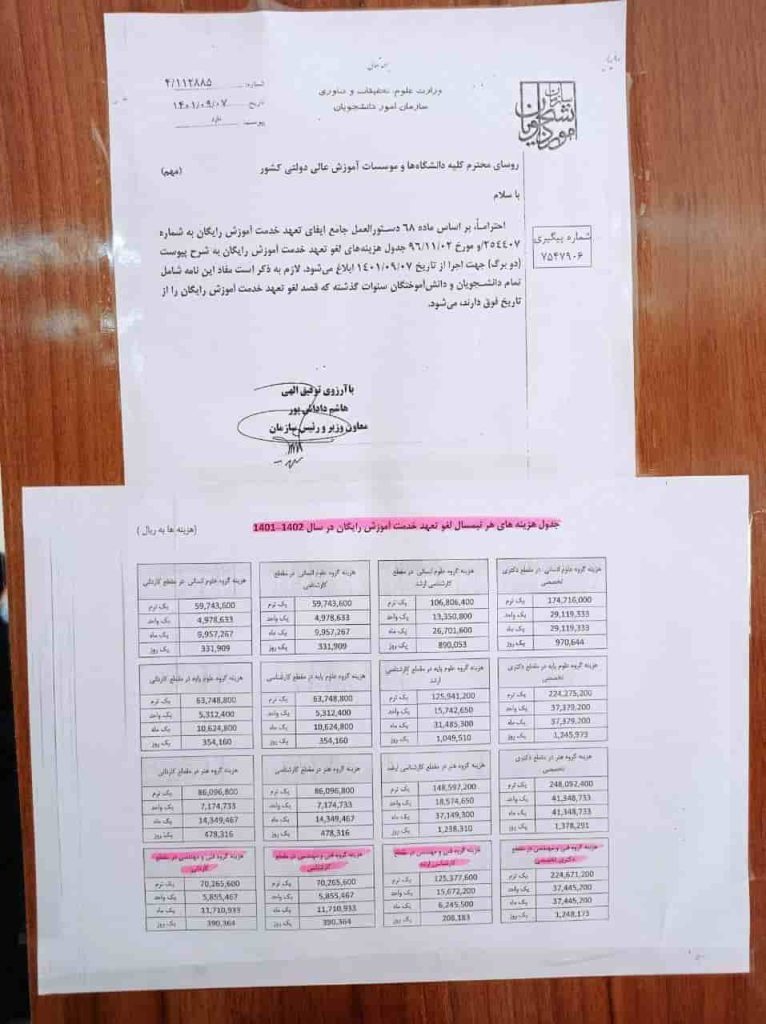 بسمه تعالی
وزارت علوم، تحقیقات و فناوری
سازمان امور دانشجویان
سازمان امور دانشجویان
شماره: ۴/۱۱۲۸۸۵
تاریخ: ۱۴۰۱/۰۹/۰۷
پیوست: دارد
روسای محترم کلیه دانشگاه‌ها و موسسات آموزش عالی دولتی کشور (مهم)
با سلام
احتراماً، بر اساس ماده ۶۸ دستورالعمل جامع ایفای تعهد خدمت آموزش رایگان به شماره
۲۵۴۴۰۷/و مورخ ۹۶/۱۱/۰۲ جدول هزینه‌های لغو تعهد خدمت آموزش رایگان به شرح پیوست
(دو برگ) جهت اجرا از تاریخ ۱۴۰۱/۰۹/۰۷ ابلاغ می‌شود. لازم به ذکر است مفاد این نامه شامل
تمام دانشجویان و دانش‌آموختگان سنوات گذشته که قصد لغو تعهد خدمت آموزش رایگان را از
تاریخ فوق دارند، می‌شود.
شماره پیگیری
۷۵۴۷۹۰۶
با آرزوی توفیق الهی
هاشم داداش پور
معاون وزیر و رئیس سازمان
جدول هزینه های هر نیمسال لغو تعهد خدمت آموزش رایگان در سال 1402-1401 (هزینه ها به ریال)
هزینه گروه علوم انسانی در مقطع دکتری
تخصصی
یک ترم 174,716,000
یک واحد 29,119,333
یک ماه 29,119,333
یک روز 970,644
هزینه گروه علوم انسانی در مقطع
کارشناسی ارشد
یک ترم 106,806,400
یک واحد 13,350,800
یک ماه 26,701,600
یک روز 890,053
هزینه گروه علوم انسانی در مقطع
کارشناسی
یک ترم 59,743,600
یک واحد 4,978,633
یک ماه 9,957,267
یک روز 331,909
هزینه گروه علوم انسانی در مقطع کاردانی
یک ترم 59,743,600
یک واحد 4,978,633
یک ماه 9,957,267
یک روز 331,909
هزینه گروه علوم پایه در مقطع دکتری
تخصصی
یک ترم 224,275,200
یک واحد 37,379,200
یک ماه 37,379,200
یک روز 1,245,973
هزینه گروه علوم پایه در مقطع کارشناسی
ارشد
یک ترم 125,941,200
یک واحد 15,742,650
یک ماه 31,485,300
یک روز 1,049,510
هزینه گروه علوم پایه در مقطع کارشناسی
یک ترم 63,748,800
یک واحد 5,312,400
یک ماه 10,624,800
یک روز 354,160
هزینه گروه علوم پایه در مقطع کاردانی
یک ترم 63,748,800
یک واحد 5,312,400
یک ماه 10,624,800
یک روز 354,160
هزینه گروه هنر در مقطع دکتری
تخصصی
یک ترم 248,092,400
یک واحد 41,348,733
یک ماه 41,348,733
یک روز 1,378,291
هزینه گروه هنر در مقطع کارشناسی ارشد
یک ترم 148,597,200
یک واحد 18,574,650
یک ماه 37,149,300
یک روز 1,238,310
هزینه گروه هنر در مقطع کارشناسی
یک ترم 86,096,800
یک واحد 7,174,733
یک ماه 14,349,467
یک روز 478,316
هزینه گروه هنر در مقطع کاردانی
یک ترم 86,096,800
یک واحد 7,174,733
یک ماه 14,349,467
یک روز 478,316
هزینه گروه فنی و مهندسی در مقطع
دکتری تخصصی
یک ترم 224,671,200
یک واحد 37,445,200
یک ماه 37,445,200
یک روز 1,248,173
هزینه گروه فنی و مهندسی در مقطع
کارشناسی ارشد
یک ترم 125,377,600
یک واحد 15,672,200
یک ماه 6,245,500
یک روز 208,183
هزینه گروه فنی و مهندسی در مقطع
کارشناسی
یک ترم 70,265,600
یک واحد 5,855,467
یک ماه 11,710,933
یک روز 390,364
هزینه گروه فنی و مهندسی در مقطع
کاردانی
یک ترم 70,265,600
یک واحد 5,855,467
یک ماه 11,710,933
یک روز 390,364